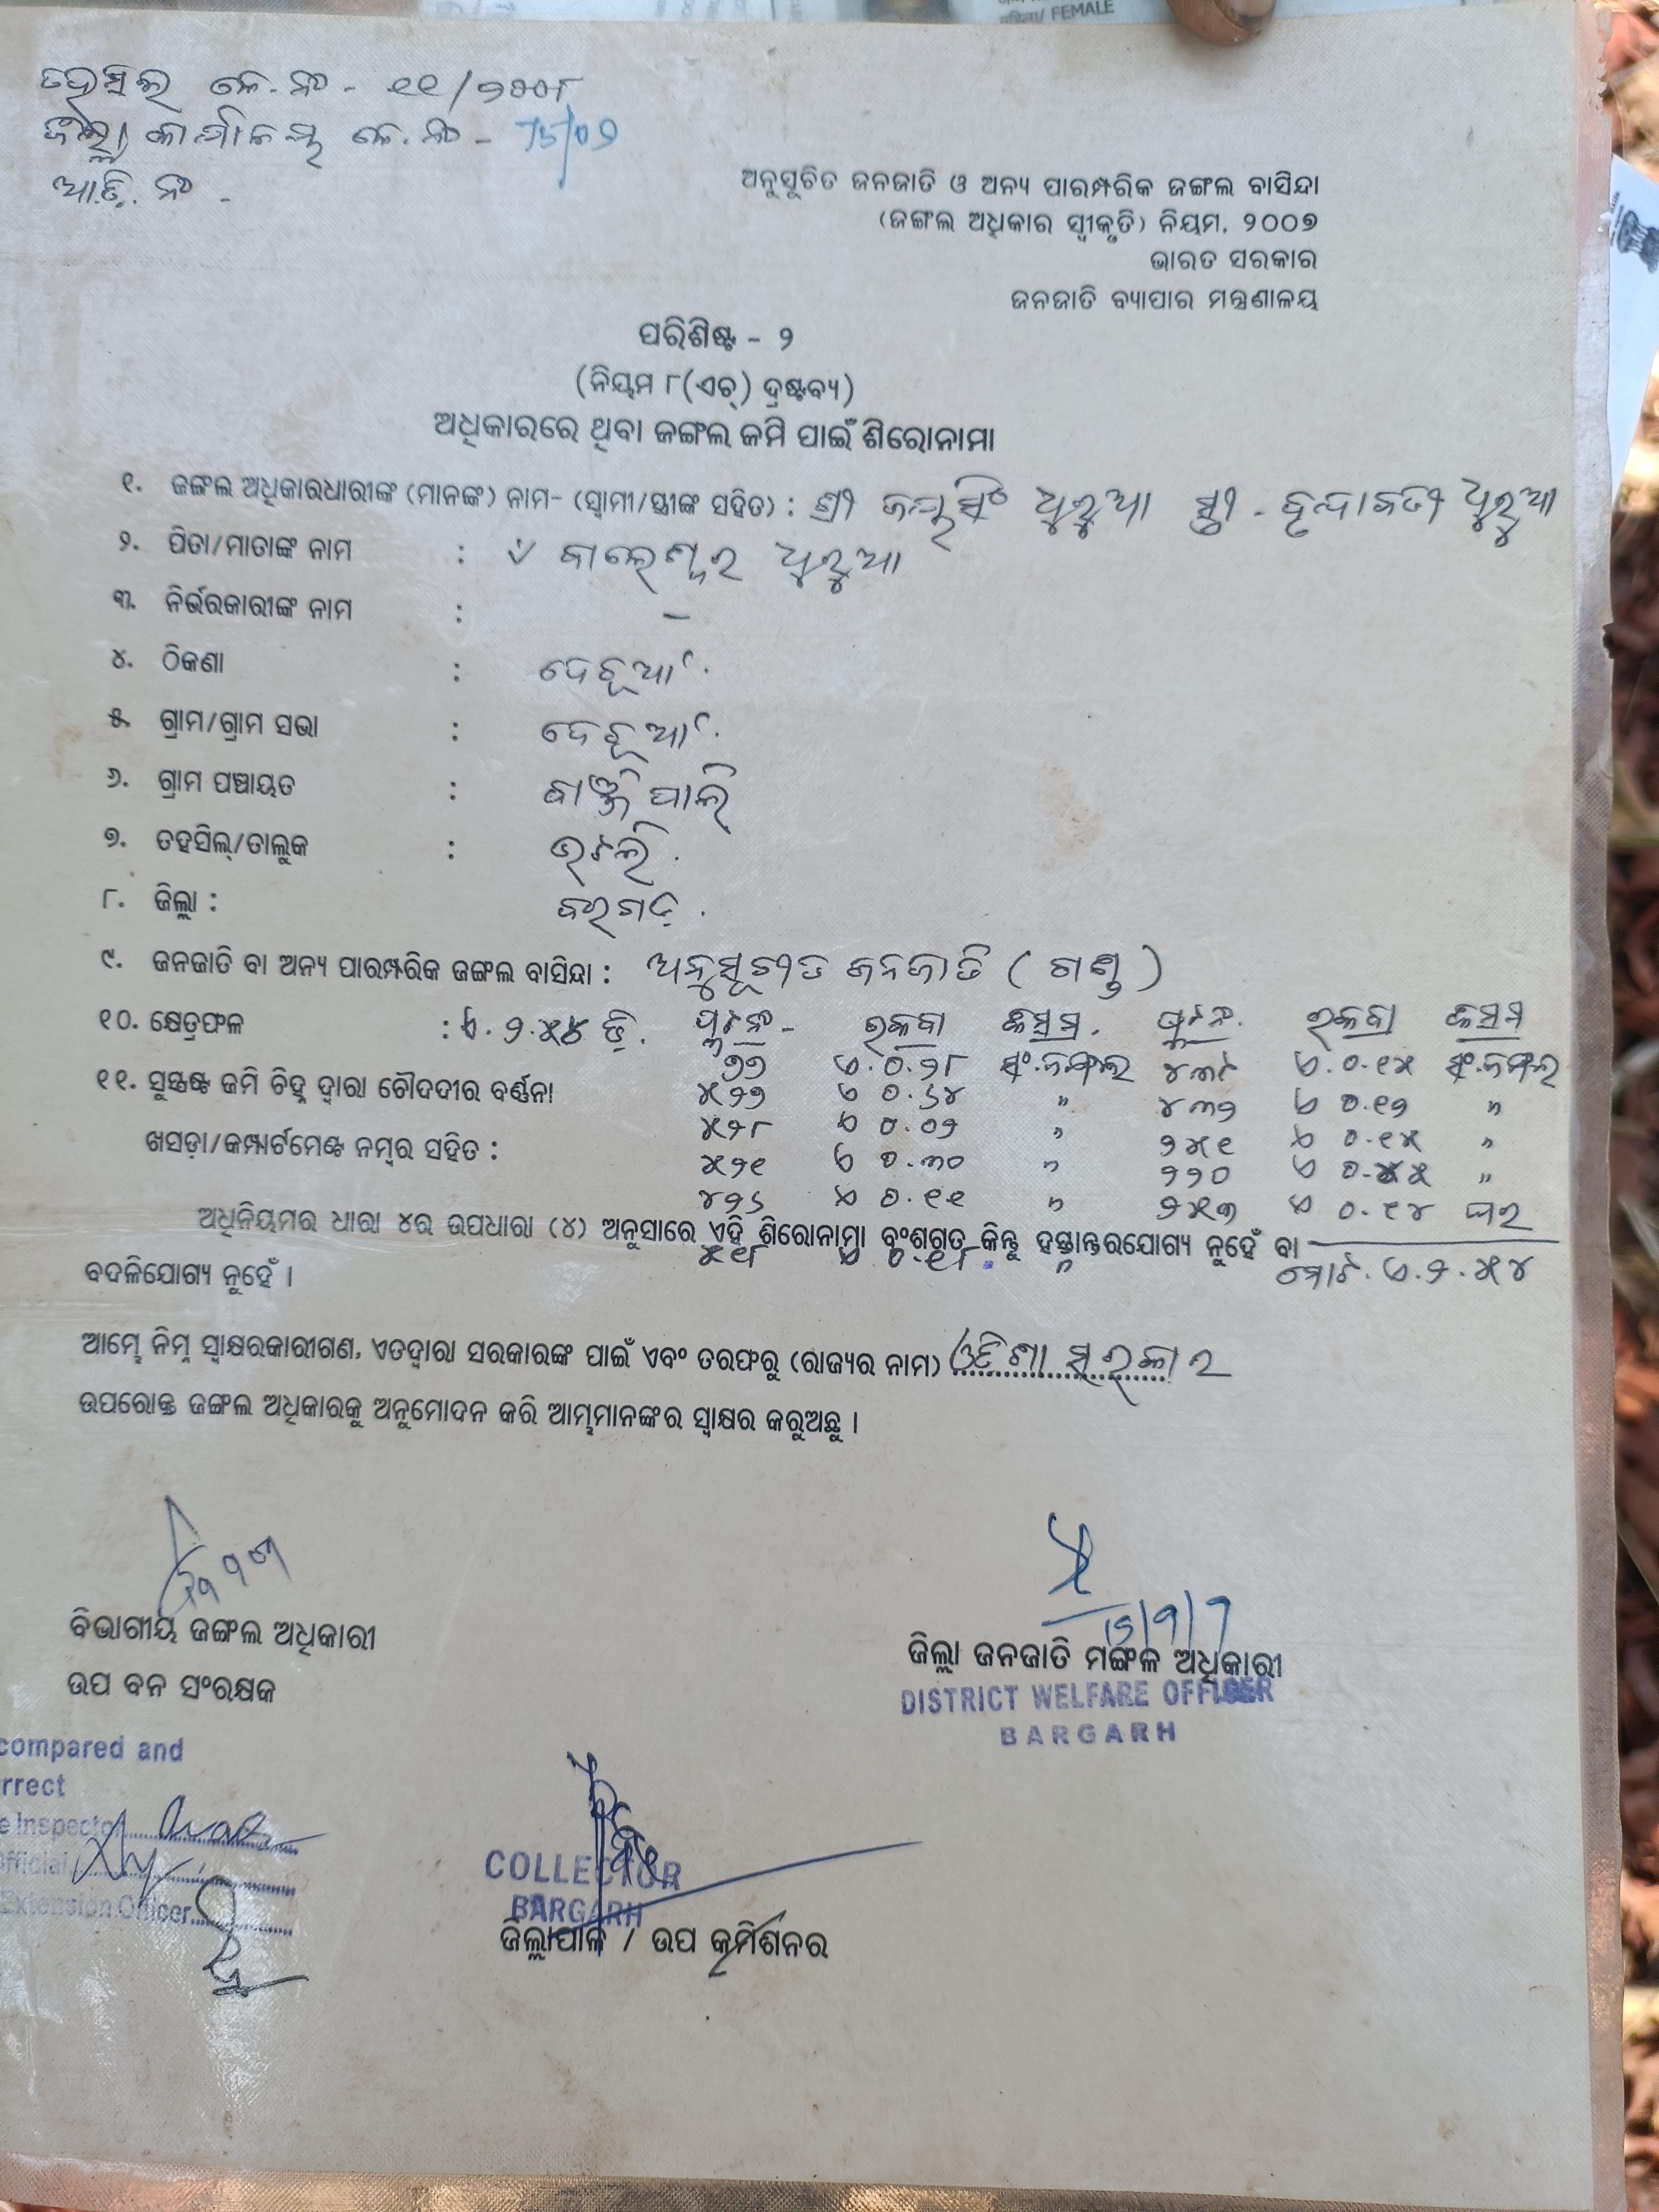 ମହିଳା/ FEMALE
ତହସିଲ କେ.ନଂ - ୧୧/୨୦୦୮
ଜିଲ୍ଲା କାର୍ଯ୍ୟାଳୟ କେ.ନଂ - 75/09
ଆ.ଡି. ନଂ -
ଅନୁସୂଚିତ ଜନଜାତି ଓ ଅନ୍ୟ ପାରମ୍ପରିକ ଜଙ୍ଗଲ ବାସିନ୍ଦା
(ଜଙ୍ଗଲ ଅଧିକାର ସ୍ୱୀକୃତି) ନିୟମ, ୨୦୦୭
ଭାରତ ସରକାର
ଜନଜାତି ବ୍ୟାପାର ମନ୍ତ୍ରଣାଳୟ
ପରିଶିଷ୍ଟ - ୨
(ନିୟମ ୮(ଏଚ୍) ଦ୍ରଷ୍ଟବ୍ୟ)
ଅଧିକାରରେ ଥିବା ଜଙ୍ଗଲ ଜମି ପାଇଁ ଶିରୋନାମା
୧. ଜଙ୍ଗଲ ଅଧିକାରଧାରୀଙ୍କ (ମାନଙ୍କ) ନାମ- (ସ୍ୱାମୀ/ସ୍ତ୍ରୀଙ୍କ ସହିତ) : ଶ୍ରୀ ଜୟସିଂ ଧୁରୁଆ ସ୍ତ୍ରୀ - ବୃନ୍ଦାବତୀ ଧୁରୁଆ
୨. ପିତା/ମାତାଙ୍କ ନାମ : ବାଲେଶ୍ୱର ଧୁରୁଆ
୩. ନିର୍ଭରକାରୀଙ୍କ ନାମ : –
୪. ଠିକଣା : ଦେଚୂଆଁ.
୫. ଗ୍ରାମ/ଗ୍ରାମ ସଭା : ଦେଚୂଆଁ.
୬. ଗ୍ରାମ ପଞ୍ଚାୟତ : ବାଞ୍ଜିପାଲି
୭. ତହସିଲ୍/ତାଲୁକ : ଭଟଲି.
୮. ଜିଲ୍ଲା : ବରଗଡ଼.
୯. ଜନଜାତି ବା ଅନ୍ୟ ପାରମ୍ପରିକ ଜଙ୍ଗଲ ବାସିନ୍ଦା : ଅନୁସୂଚୀତ ଜନଜାତି (ଗଣ୍ଡ)
୧୦. କ୍ଷେତ୍ରଫଳ : ଏ.୨.୫୪ ଡି. ପ୍ଲଟନଂ - ରକବା କିସମ. ପ୍ଲଟନଂ. ରକବା କିସମ
୭୭ ଏ.୦.୨୮ ସଂ.ଜଙ୍ଗଲ ୪୩୯ ଏ.୦.୧୫ ସଂ.ଜଙ୍ଗଲ
୧୧. ସୁସ୍ପଷ୍ଟ ଜମି ଚିହ୍ନ ଦ୍ୱାରା ଚୌଦଦୀର ବର୍ଣ୍ଣନା ୫୨୭ ଏ ୦.୬୪ " ୪୩୨ ଏ ୦.୧୨ "
୫୨୮ ଏ ୦.୦୨ " ୨୫୧ ଏ ୦.୧୫ "
ଖସଡ଼ା/କମ୍ପାର୍ଟମେଣ୍ଟ ନମ୍ବର ସହିତ : ୫୨୧ ଏ ୦.୩୦ " ୨୨୦ ଏ ୦.୫୫ "
୪୨୬ ଏ ୦.୧୧ " ୨୫୩ ଏ ୦.୧୪ ଘର
ଅଧିନିୟମର ଧାରା ୪ର ଉପଧାରା (୪) ଅନୁସାରେ ଏହି ଶିରୋନାମା ବଂଶଗତ କିନ୍ତୁ ହସ୍ତାନ୍ତରଯୋଗ୍ୟ ନୁହେଁ ବା
୫୧୮ ଏ ୦.୧୮ "
ବଦଳିଯୋଗ୍ୟ ନୁହେଁ । ମୋଟ. ଏ.୨.୫୪
ଆମ୍ଭେ ନିମ୍ନ ସ୍ୱାକ୍ଷରକାରୀଗଣ, ଏତଦ୍ୱାରା ସରକାରଙ୍କ ପାଇଁ ଏବଂ ତରଫରୁ (ରାଜ୍ୟର ନାମ) ଓଡିଶା ସରକାର
ଉପରୋକ୍ତ ଜଙ୍ଗଲ ଅଧିକାରକୁ ଅନୁମୋଦନ କରି ଆମ୍ଭମାନଙ୍କର ସ୍ୱାକ୍ଷର କରୁଅଛୁ ।
ବିଭାଗୀୟ ଜଙ୍ଗଲ ଅଧିକାରୀ
ଉପ ବନ ସଂରକ୍ଷକ
ଜିଲ୍ଲା ଜନଜାତି ମଙ୍ଗଳ ଅଧିକାରୀ
DISTRICT WELFARE OFFICER
BARGARH
compared and
rrect
e Inspector
Official
Extension Officer
COLLECTOR
BARGARH
ଜିଲ୍ଲାପାଳ / ଉପ କମିଶନର